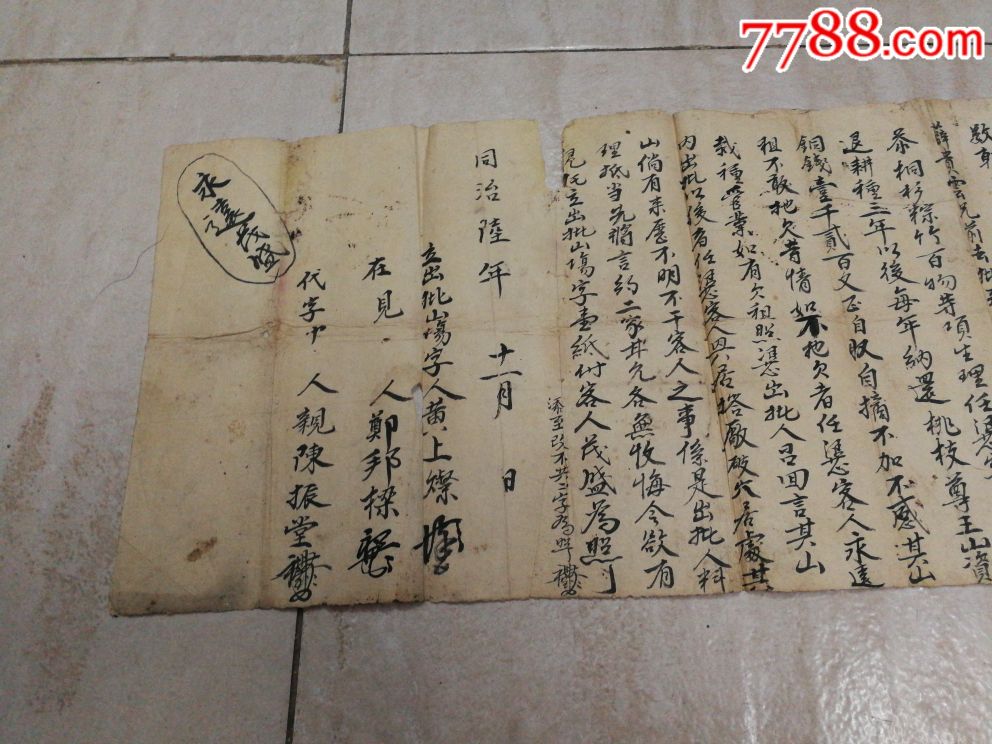 7788.com
数
薛貴雲兄前去
茶桐杉棕竹百物等項生理任憑
退耕種三年以後每年納還桃枝尊王山資
銅錢壹千貳百文正自收自摘不加不减其山
租不敢拖欠昔情如不拖欠者任憑客人永遠
栽種管業如有欠租照憑出批人召回言其山
内出批以後者任憑客人興居搭廠破穴居處其
山倘有来歷不明不干客人之事係是出批人料
理抵当先將言約二家井允各無收悔今欲有
見仝立出批山塲字壹紙付客人茂盛為照
添至改不共二字為照
同治陸年 十一月 日
立出批山塲字人黄上燦
在見 人鄭邦樑
代字中 人親陳振堂
永遠茂盛